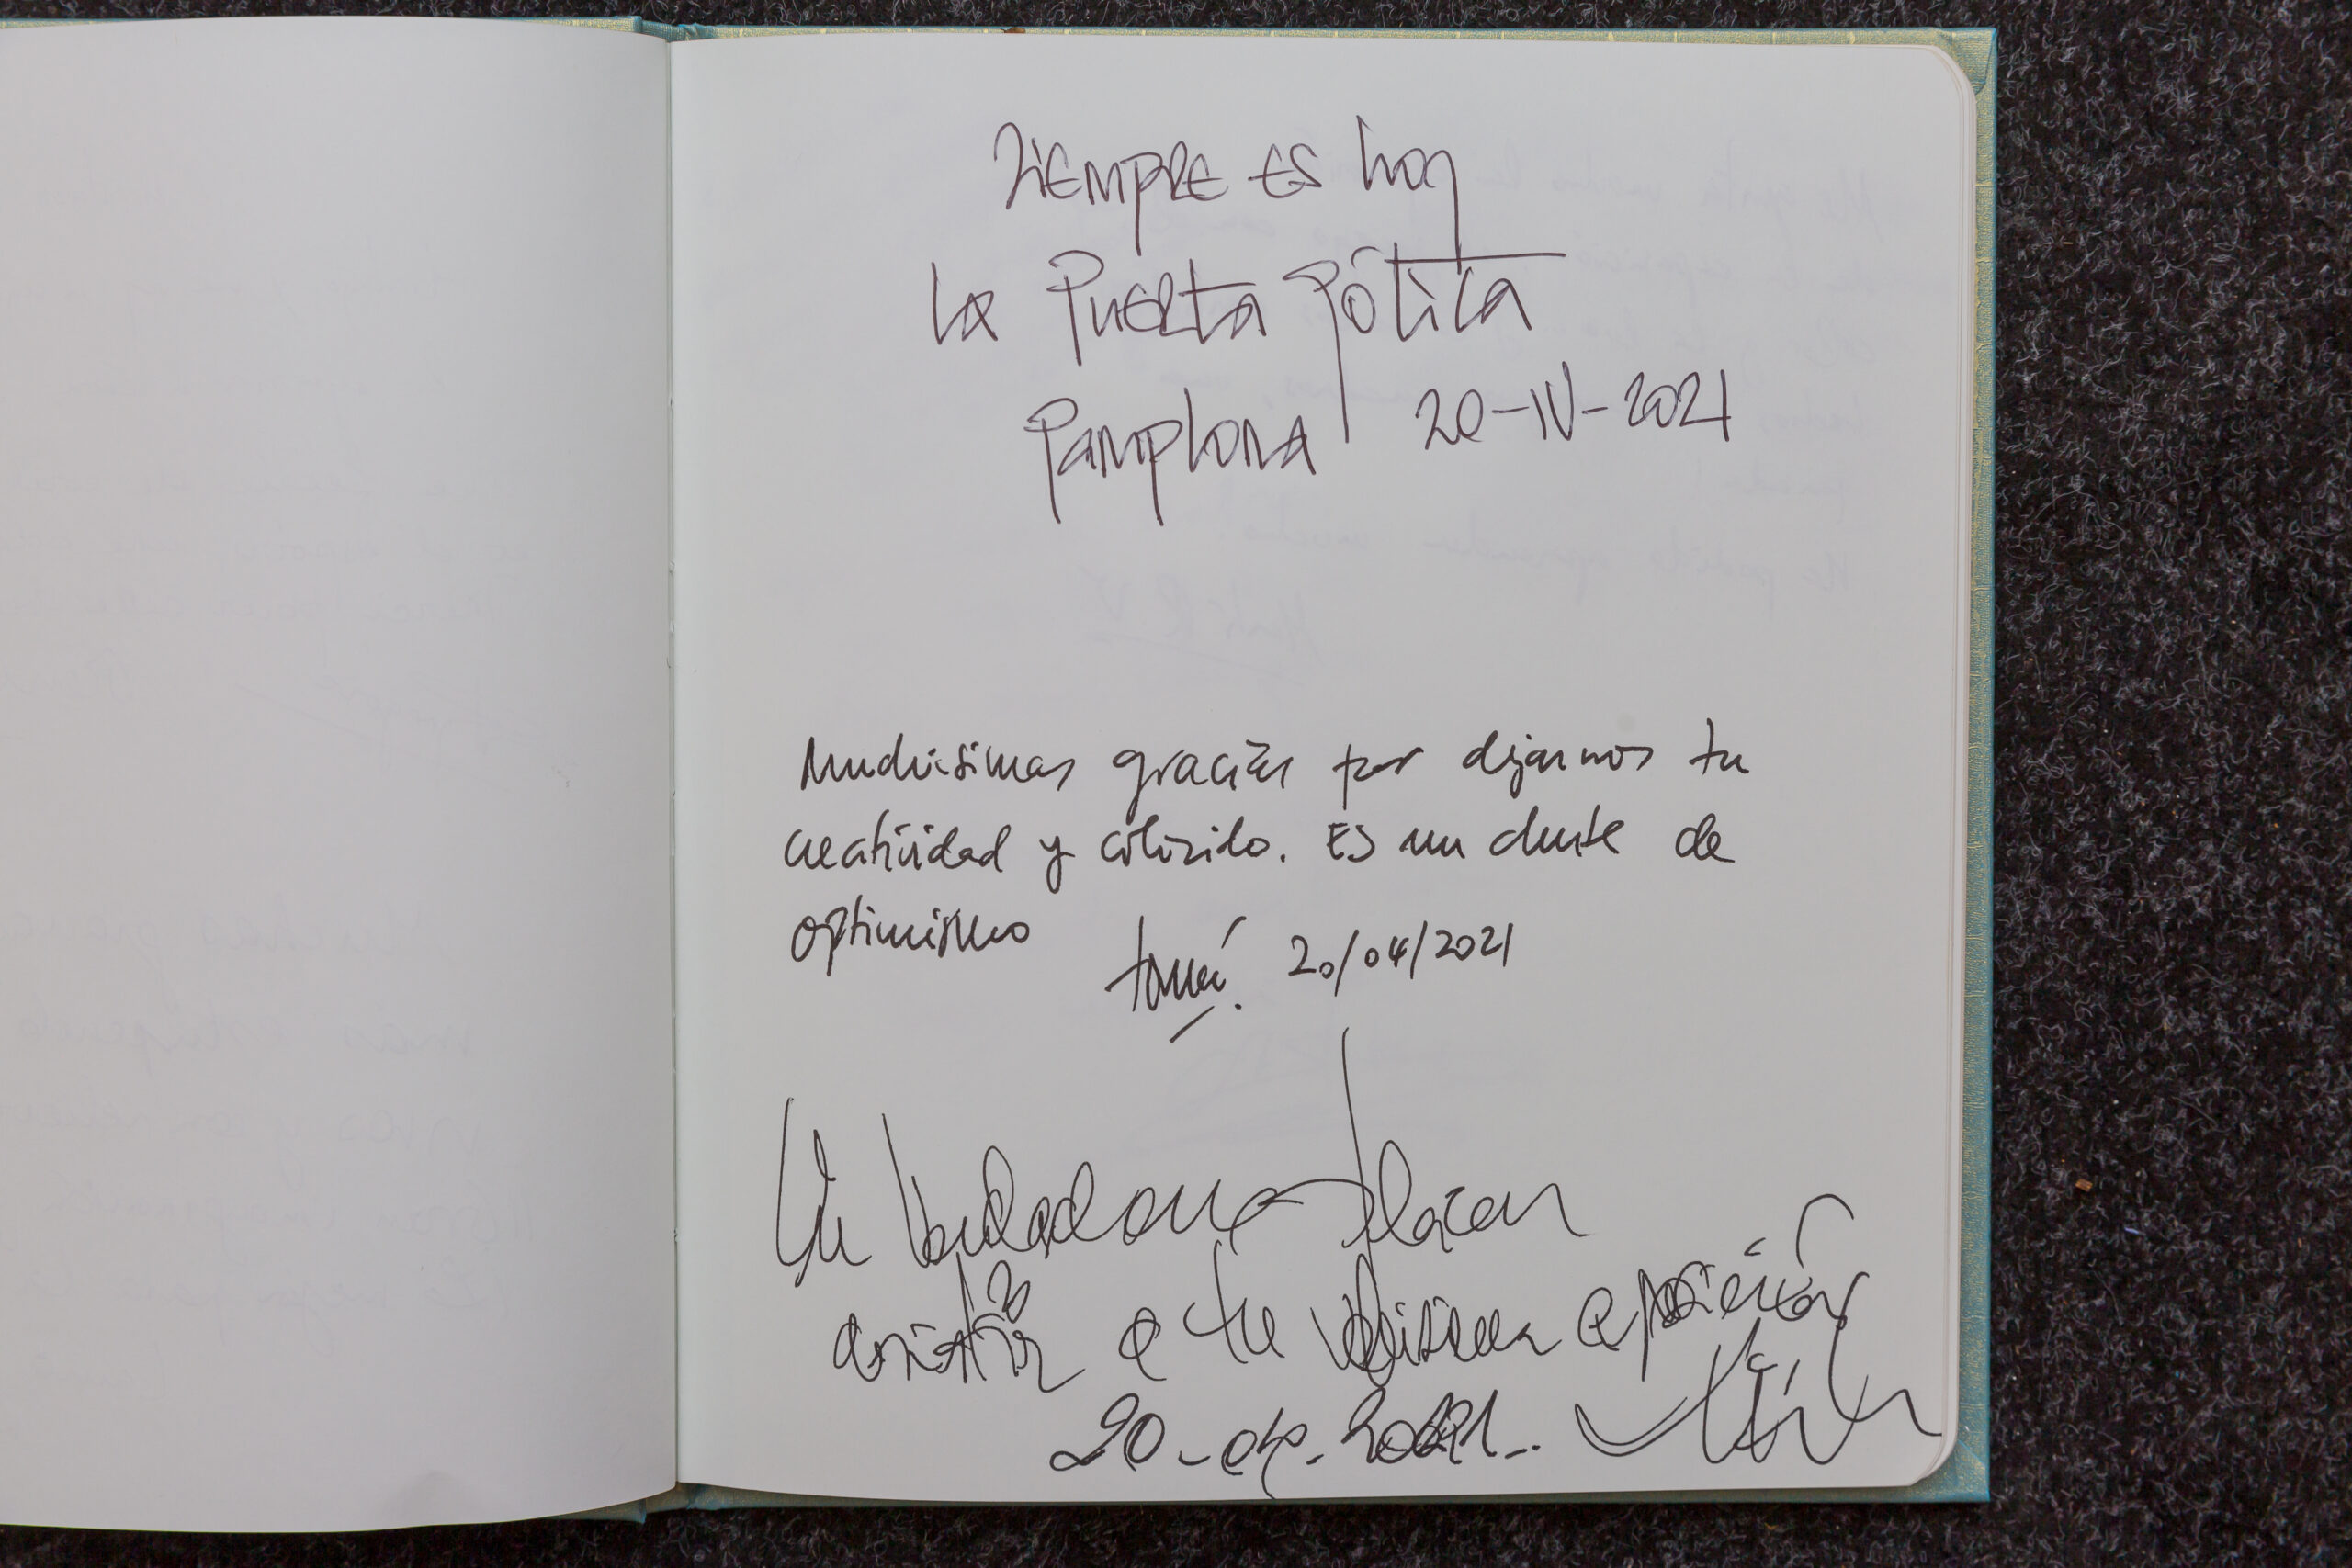 Siempre es hoy
La Puerta Pótica
Pamplona 20-IV-2021
Muchísimas gracias por dejarnos tu
creatividad y colorido. Es un chute de
optimismo
20/04/2021
Un verdadero placer
asistir a tu exposición
20-04-2021-.